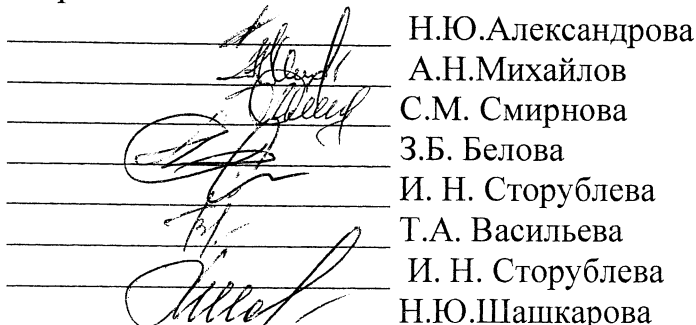 Н.Ю.Александрова
А.Н.Михайлов
С.М. Смирнова
З.Б. Белова
И. Н. Сторублева
Т.А. Васильева
И. Н. Сторублева
Н.Ю.Шашкарова